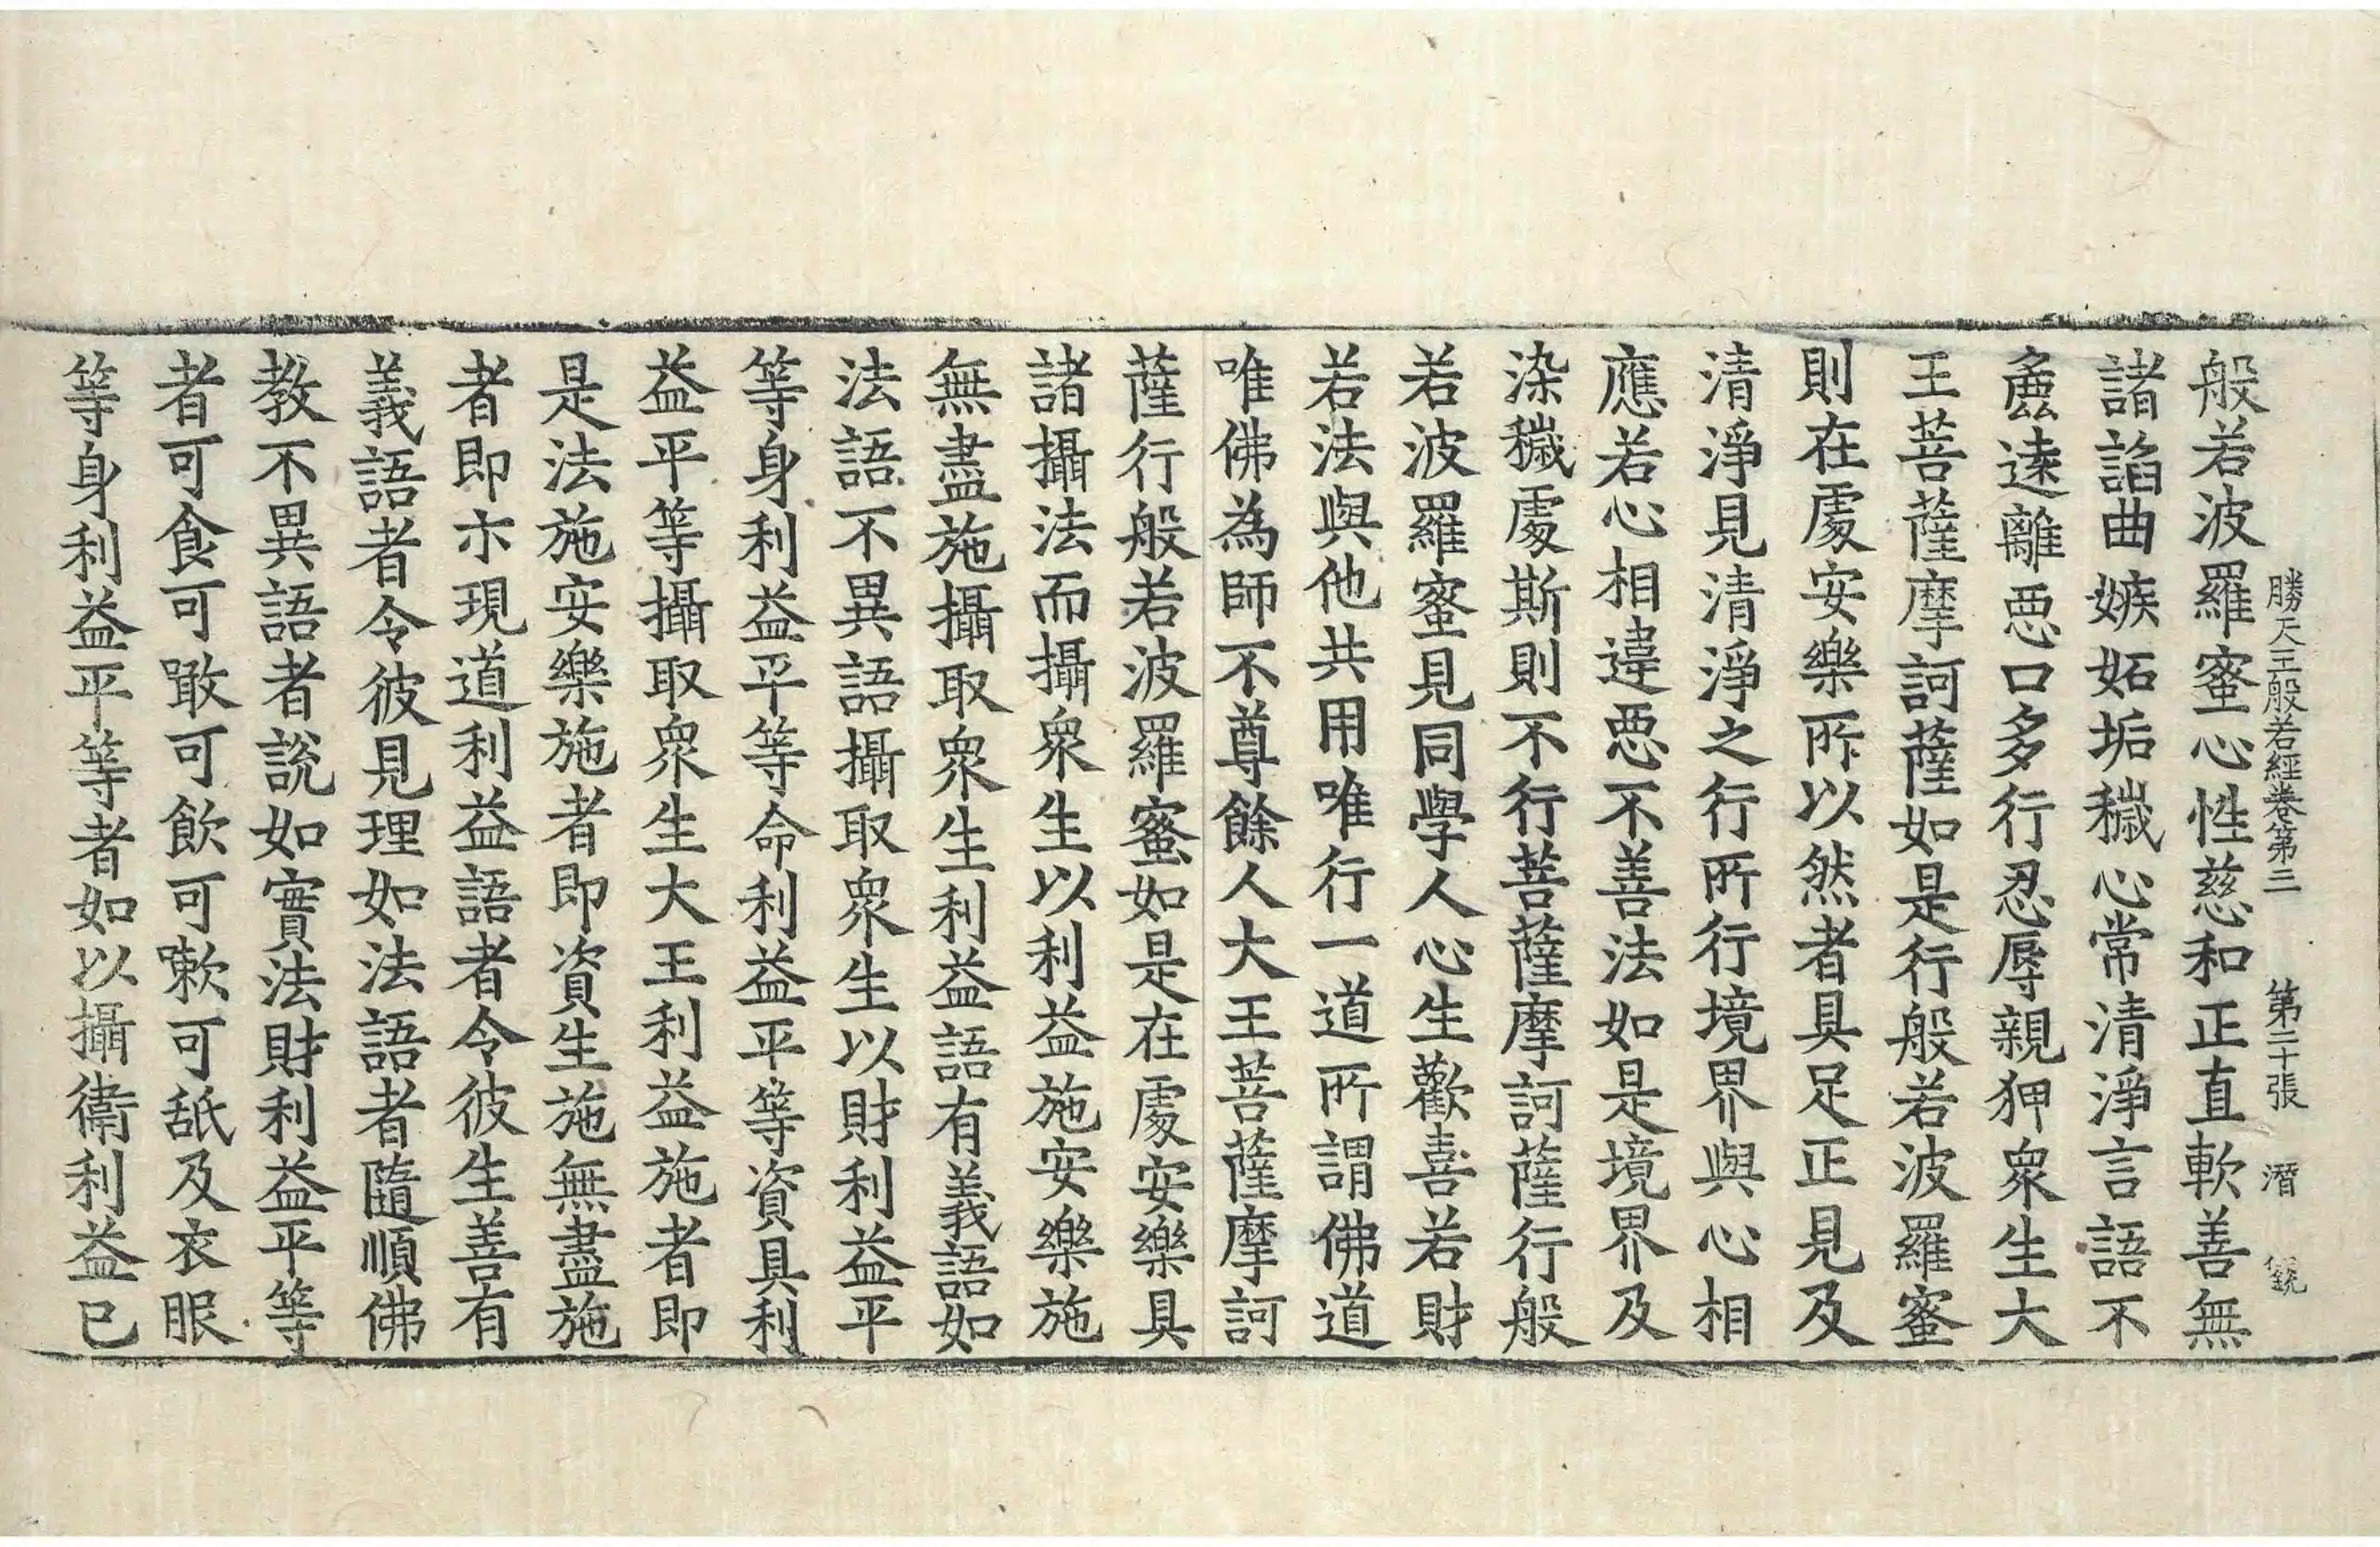 勝天王般若經卷第三　第二十張　潛
般若波羅蜜心性慈和正直軟善無
諸諂曲嫉妬垢穢心常清淨言語不
麁遠離惡口多行忍辱親狎衆生大
王菩薩摩訶薩如是行般若波羅蜜
則在處安樂所以然者具足正見及
清淨見清淨之行所行境界與心相
應若心相違惡不善法如是境界及
染穢處斯則不行菩薩摩訶薩行般
若波羅蜜見同學人心生歡喜若財
若法與他共用唯行一道所謂佛道
唯佛為師不尊餘人大王菩薩摩訶
薩行般若波羅蜜如是在處安樂具
諸攝法而攝衆生以利益施安樂施
無盡施攝取衆生利益語有義語如
法語不異語攝取衆生以財利益平
等身利益平等命利益平等資具利
益平等攝取衆生大王利益施者即
是法施安樂施者即資生施無盡施
者即示現道利益語者令彼生善有
義語者令彼見理如法語者隨順佛
教不異語者說如實法財利益平等
者可食可噉可飲可嗽可舐及衣服
等身利益平等者如以攝衛利益已